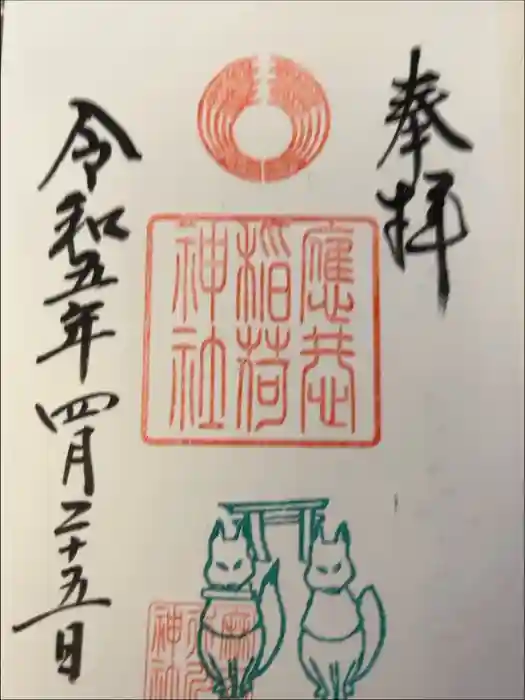 奉拝
應恭
稲荷
神社
令和五年四月二十五日
神社